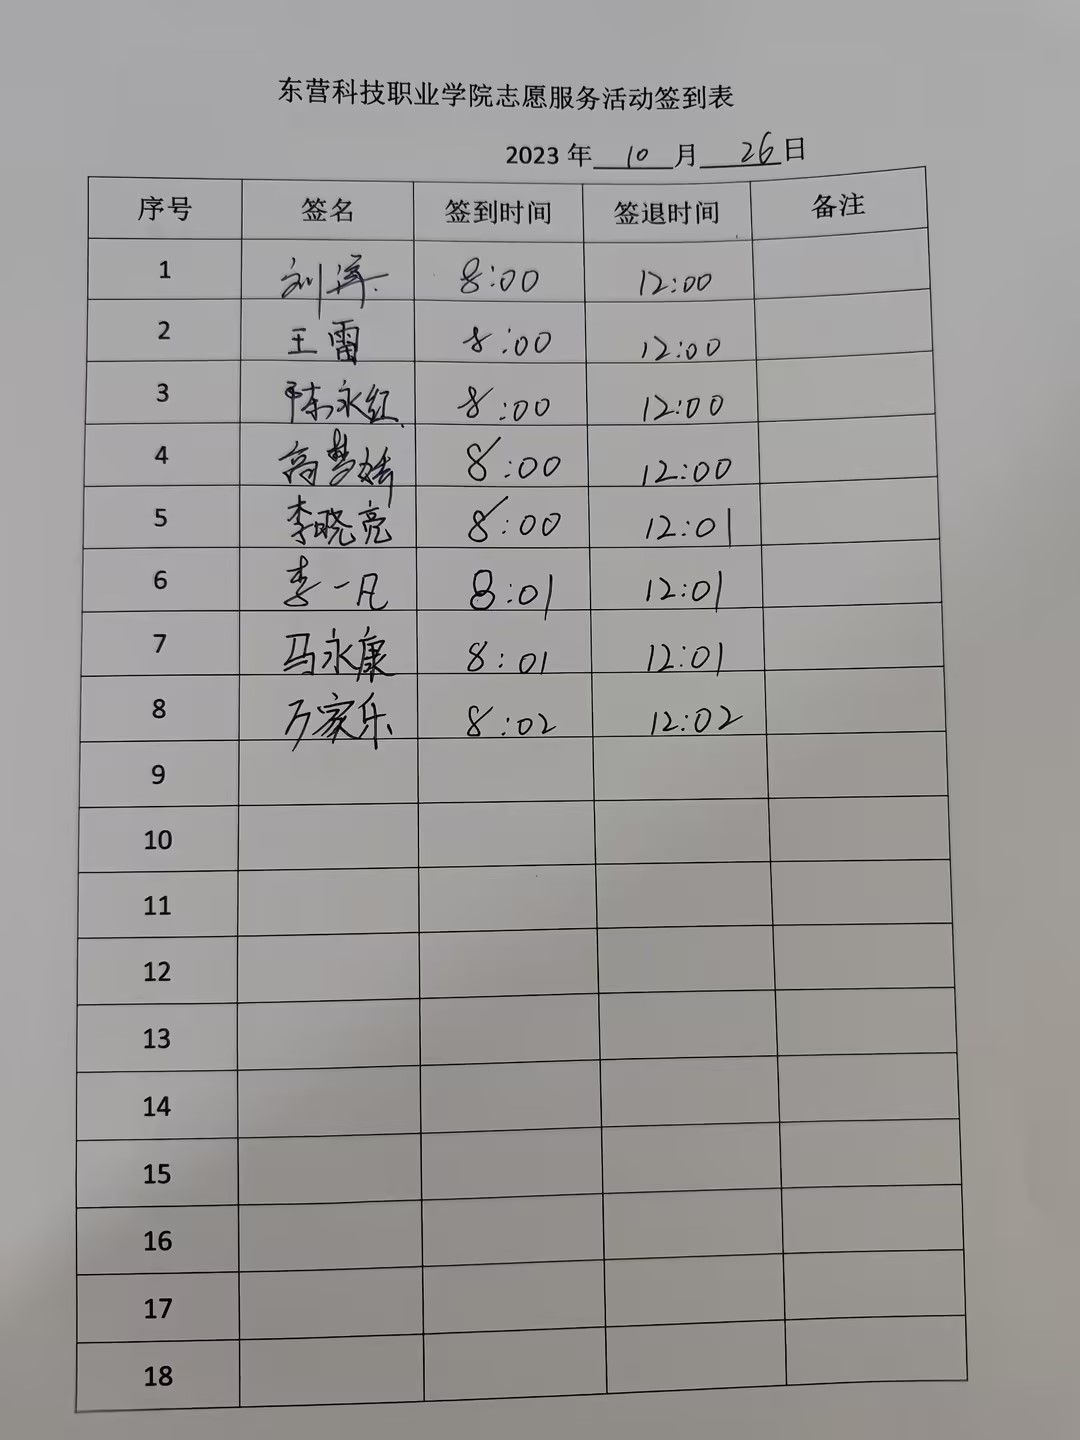 东营科技职业学院志愿服务活动签到表
2023 年 10 月 26 日
序号 签名 签到时间 签退时间 备注
1 刘洋 8:00 12:00
2 王雷 8:00 12:00
3 陈永红 8:00 12:00
4 高梦瑶 8:00 12:00
5 李晓亮 8:00 12:01
6 李一凡 8:01 12:01
7 马永康 8:01 12:01
8 万家乐 8:02 12:02
9
10
11
12
13
14
15
16
17
18